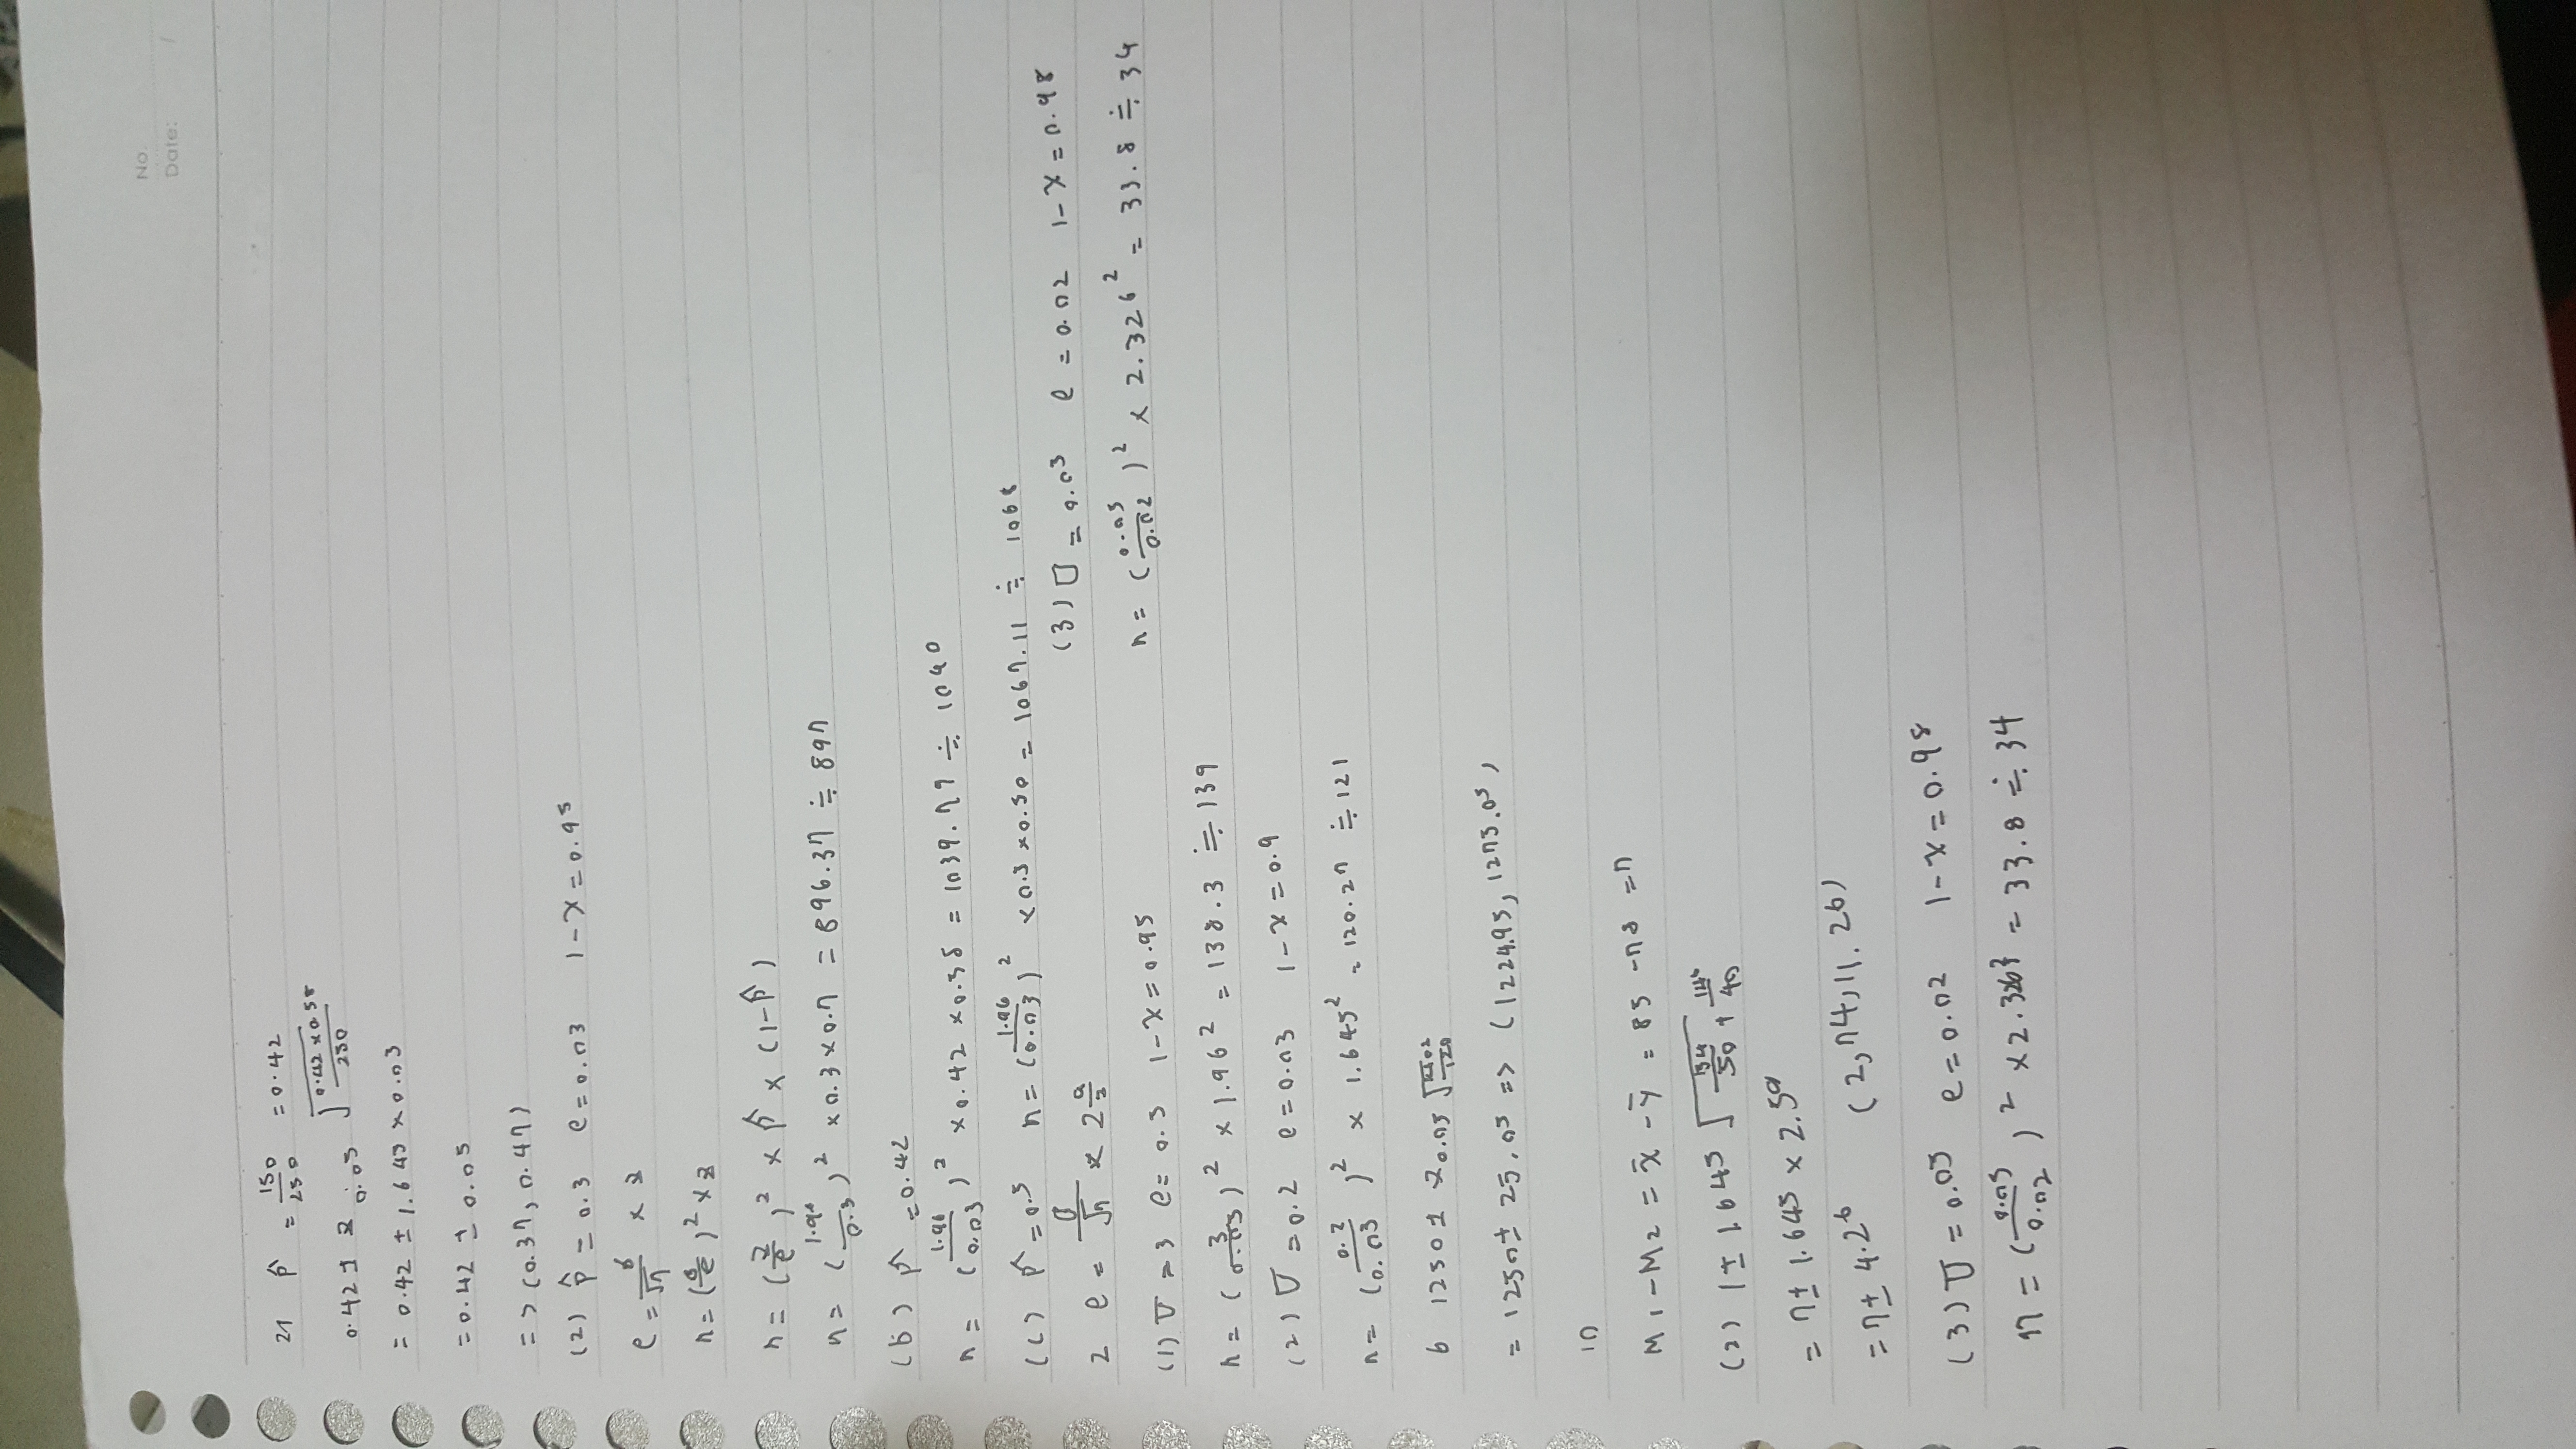 No.
Date: /
21 p̂ = 150/250 = 0.42
0.42 ± z 0.05 √(0.42 × 0.58 / 250)
= 0.42 ± 1.645 × 0.03
= 0.42 ± 0.05
=> (0.37, 0.47)
(2) p̂ = 0.3 e = 0.03 1-x = 0.95
e = σ/√n × z
n = (σ/e)² × z
n = (z/e)² × p̂ × (1-p̂)
n = (1.96/0.3)² × 0.3 × 0.7 = 896.37 ≒ 897
(b) p̂ = 0.42
n = (1.96/0.03)² × 0.42 × 0.58 = 1039.79 ≒ 1040
(c) p̂ = 0.5 n = (1.96/0.03)² × 0.5 × 0.50 = 1067.11 ≒ 1068
2 e = σ/√n × z a/2
(1) σ = 3 e = 0.5 1-x = 0.95
n = (3/0.05)² × 1.96² = 138.3 ≒ 139
(2) σ = 0.2 e = 0.03 1-x = 0.9
n = (0.2/0.03)² × 1.645² = 120.27 ≒ 121
(3) σ = 0.05 e = 0.02 1-x = 0.98
n = (0.05/0.02)² × 2.326² = 33.8 ≒ 34
6 1250 ± z0.05
= 1250 ± 25.05 => (1224.95, 1275.05)
10
M1-M2 = x̄ - ȳ = 85 - 78 = 7
(2) 7 ± 1.645 √(/50 + /40)
= 7 ± 1.645 × 2.59
= 7 ± 4.26 (2,74, 11.26)
(3) σ = 0.05 e = 0.02 1-x = 0.98
n = (0.05/0.02)² × 2.326² = 33.8 ≒ 34